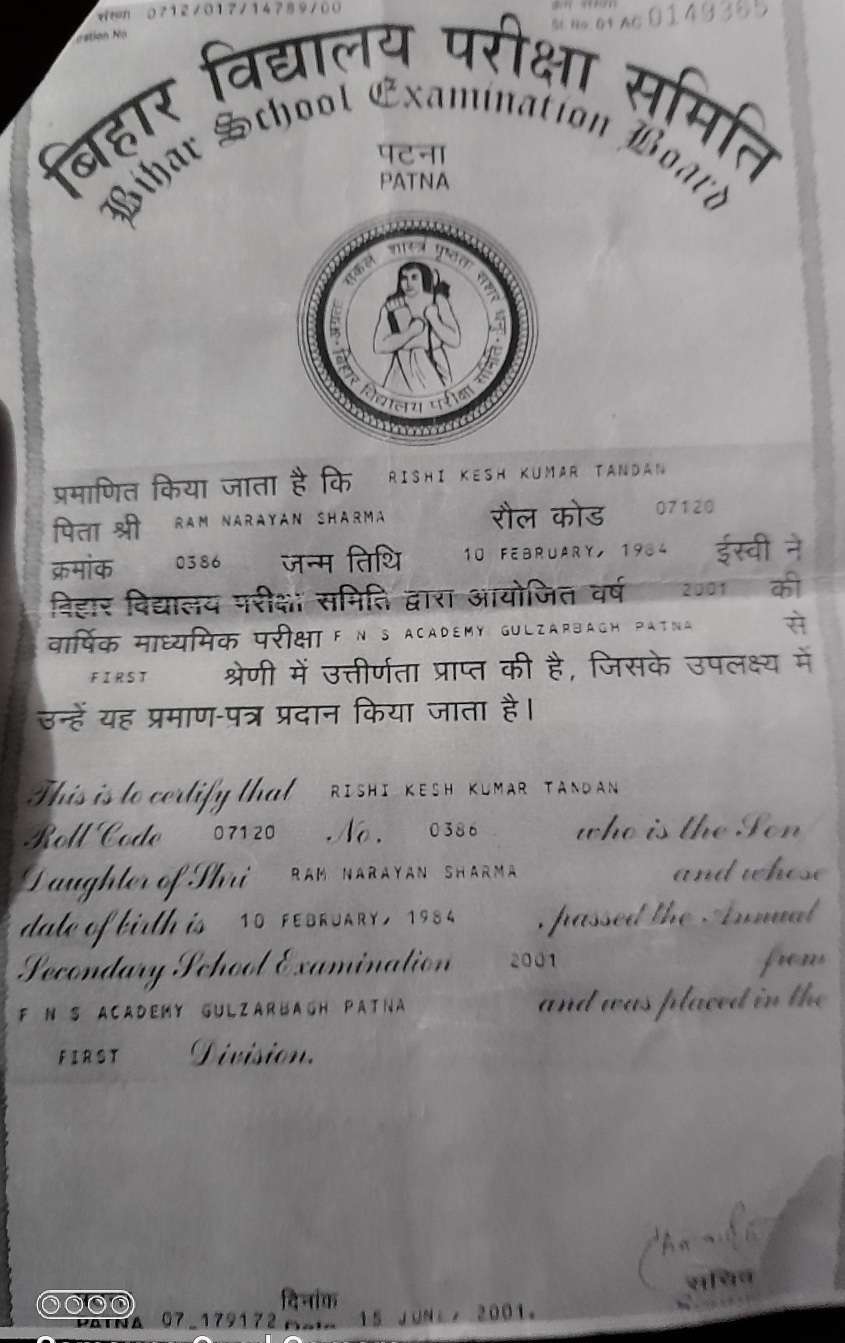 संख्या 0712/017/14789/00
ration No
क्रम संख्या
Sl No 01 AC 0149365
बिहार विद्यालय परीक्षा समिति
Bihar School Examination Board
पटना
PATNA
अग्रतः सकलं शास्त्रं पृष्ठतः सशरं धनुः
बिहार विद्यालय परीक्षा समिति
प्रमाणित किया जाता है कि RISHI KESH KUMAR TANDAN
पिता श्री RAM NARAYAN SHARMA रौल कोड 07120
क्रमांक 0386 जन्म तिथि 10 FEBRUARY, 1984 ईस्वी ने
बिहार विद्यालय परीक्षा समिति द्वारा आयोजित वर्ष 2001 की
वार्षिक माध्यमिक परीक्षा F N S ACADEMY GULZARBAGH PATNA से
FIRST श्रेणी में उत्तीर्णता प्राप्त की है, जिसके उपलक्ष्य में
उन्हें यह प्रमाण-पत्र प्रदान किया जाता है।
This is to certify that RISHI KESH KUMAR TANDAN
Roll Code 07120 No. 0386 who is the Son
Daughter of Shri RAM NARAYAN SHARMA and whose
date of birth is 10 FEBRUARY, 1984 , passed the Annual
Secondary School Examination 2001 from
F N S ACADEMY GULZARBAGH PATNA and was placed in the
FIRST Division.
सचिव
दिनांक
PATNA 07-179172 Date 15 JUNE, 2001.